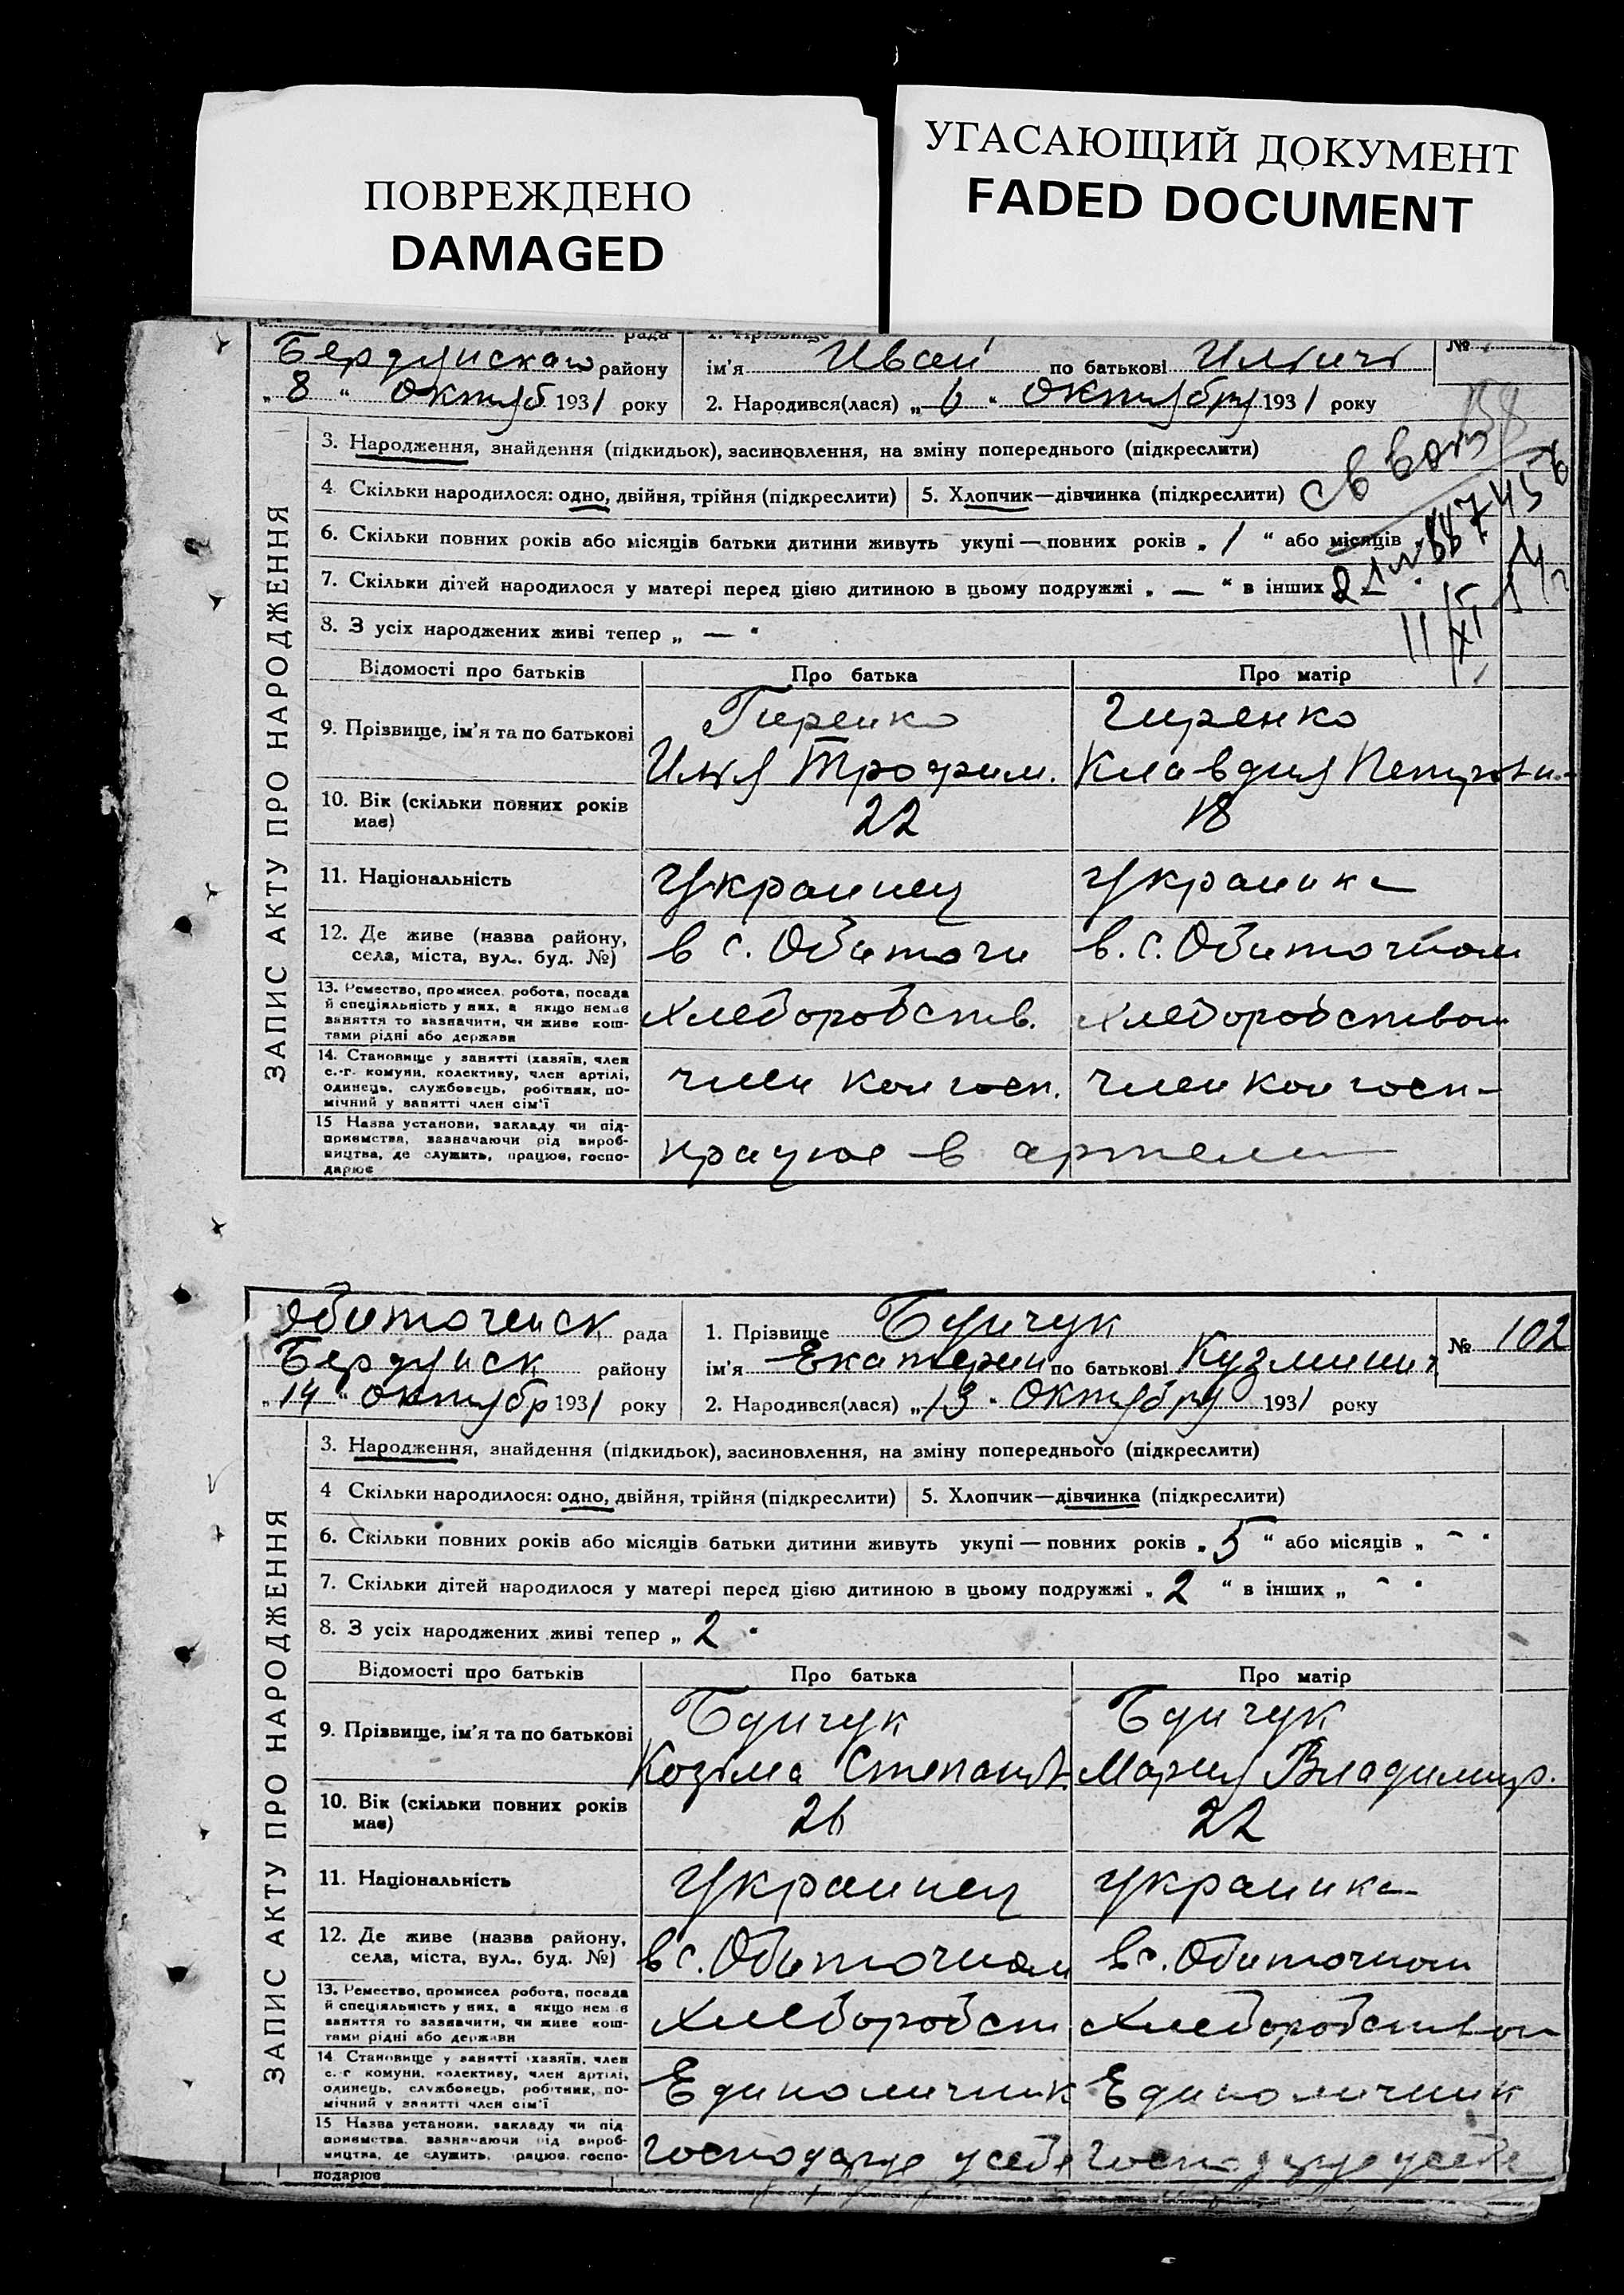 ПОВРЕЖДЕНО
DAMAGED
УГАСАЮЩИЙ ДОКУМЕНТ
FADED DOCUMENT
рада
1. Прізвище
№
району
ім'я Иван по батькові Ильич
„ 8 “ Октяб 1931 року
2. Народився(лася) „ 6 “ Октябру 1931 року
ЗАПИС АКТУ ПРО НАРОДЖЕННЯ
3. Народження, знайдення (підкидьок), засиновлення, на зміну попереднього (підкреслити)
4. Скільки народилося: одно, двійня, трійня (підкреслити)
5. Хлопчик—дівчинка (підкреслити)
6. Скільки повних років або місяців батьки дитини живуть укупі — повних років „ 1 “ або місяців
7. Скільки дітей народилося у матері перед цією дитиною в цьому подружжі „ — “ в інших
8. З усіх народжених живі тепер „ — “
11/XI
Відомості про батьків
Про батька
Про матір
9. Прізвище, ім'я та по батькові
Гиренко
Илья Трофим.
Гиренко
Клавдия
10. Вік (скільки повних років має)
22
18
11. Національність
Украинец
украинка
12. Де живе (назва району, села, міста, вул., буд. №)
в с. Обиточн
в. с. Обиточном
13. Ремество, промисел, робота, посада й спеціяльність у них, а якщо немає заняття то зазначити, чи живе коштами рідні або держави
Хлеборобств.
хлеборобством
14. Становище у занятті (хазяїн, член с.-г. комуни, колективу, член артілі, одинець, службовець, робітник, помічний у занятті член сім'ї
член
член
15 Назва установи, закладу чи підприємства, зазначаючи рід виробництва, де служить, працює, господарює
працюе в артели
Обиточенск рада
1. Прізвище
№ 102
району
ім'я Екатерин по батькові
„ 14 “ октябр 1931 року
2. Народився(лася) „ 13 “ Октябру 1931 року
ЗАПИС АКТУ ПРО НАРОДЖЕННЯ
3. Народження, знайдення (підкидьок), засиновлення, на зміну попереднього (підкреслити)
4 Скільки народилося: одно, двійня, трійня (підкреслити)
5. Хлопчик—дівчинка (підкреслити)
6. Скільки повних років або місяців батьки дитини живуть укупі — повних років „ 5 “ або місяців „ – “
7. Скільки дітей народилося у матері перед цією дитиною в цьому подружжі „ 2 “ в інших „ – “
8. З усіх народжених живі тепер „ 2 “
Відомості про батьків
Про батька
Про матір
9. Прізвище, ім'я та по батькові
Козьма
Мария Владимир.
10. Вік (скільки повних років має)
26
22
11. Національність
Украинец
украинка
12. Де живе (назва району, села, міста, вул., буд. №)
в с. Обиточном
в с. Обиточном
13. Ремество, промисел робота, посада й спеціяльність у них, а якщо немає заняття то зазначити, чи живе коштами рідні або держави
Хлеборобст
хлеборобством
14 Становище у занятті (хазяїн, член с.-г комуни, колективу, член артілі, одинець, службовець, робітник, помічний у занятті член сім'ї
Единоличник
Единоличник
15 Назва установи, закладу чи підприємства, зазначаючи рід виробництва, де служить, працює, господарюе
господарує у себе
господарує у себе
подарює